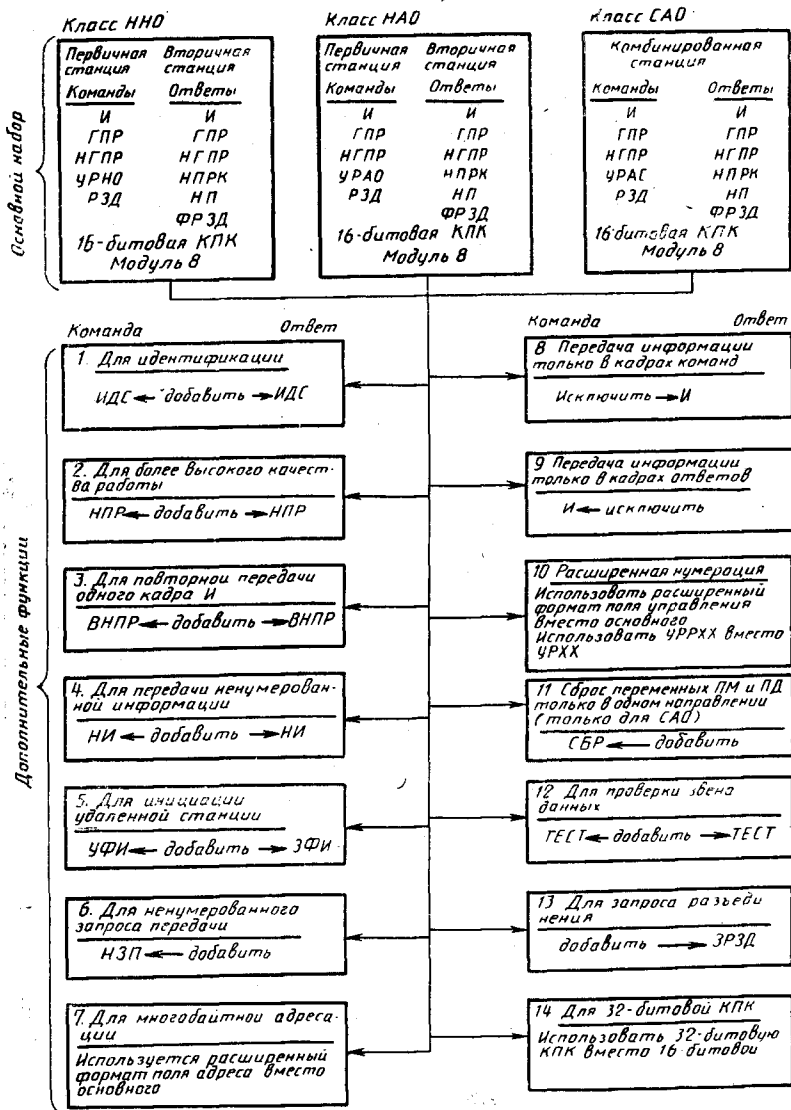 Класс ННО
Первичная Вторичная
станция станция
Команды Ответы
И И
ГПР ГПР
НГПР НГПР
УРНО НПРК
РЗД НП
ФРЗД
16-битовая КПК
Модуль 8
Класс НАО
Первичная Вторичная
станция станция
Команды Ответы
И И
ГПР ГПР
НГПР НГПР
УРАО НПРК
РЗД НП
ФРЗД
16-битовая КПК
Модуль 8
Класс САО
Комбинированная
станция
Команды Ответы
И И
ГПР ГПР
НГПР НГПР
УРАС НПРК
РЗД НП
ФРЗД
16-битовая КПК
Модуль 8
Основной набор
Дополнительные функции
Команда Ответ
1. Для идентификации
ИДС ← добавить → ИДС
2. Для более высокого качест-
ва работы
НПР ← добавить → НПР
3. Для повторной передачи
одного кадра И
ВНПР ← добавить → ВНПР
4. Для передачи ненумерован-
ной информации
НИ ← добавить → НИ
5. Для инициации
удаленной станции
УФИ ← добавить → ЗФИ
6. Для ненумерованного
запроса передачи
НЗП ← добавить
7. Для многобайтной адреса-
ции
Используется расширенный
формат поля адреса вместо
основного
Команда Ответ
8 Передача информации
только в кадрах команд
Исключить → И
9 Передача информации
только в кадрах ответов
И ← исключить
10 Расширенная нумерация
Использовать расширенный
формат поля управления
вместо основного
Использовать УРРХХ вместо
УРХХ
11 Сброс переменных ПМ и ПД
только в одном направлении
(только для САО)
СБР ← добавить
12 Для проверки звена
данных
ТЕСТ ← добавить → ТЕСТ
13 Для запроса разъеди
нения
добавить → ЗРЗД
14 Для 32-битовой КПК
Использовать 32-битовую
КПК вместо 16-битовой